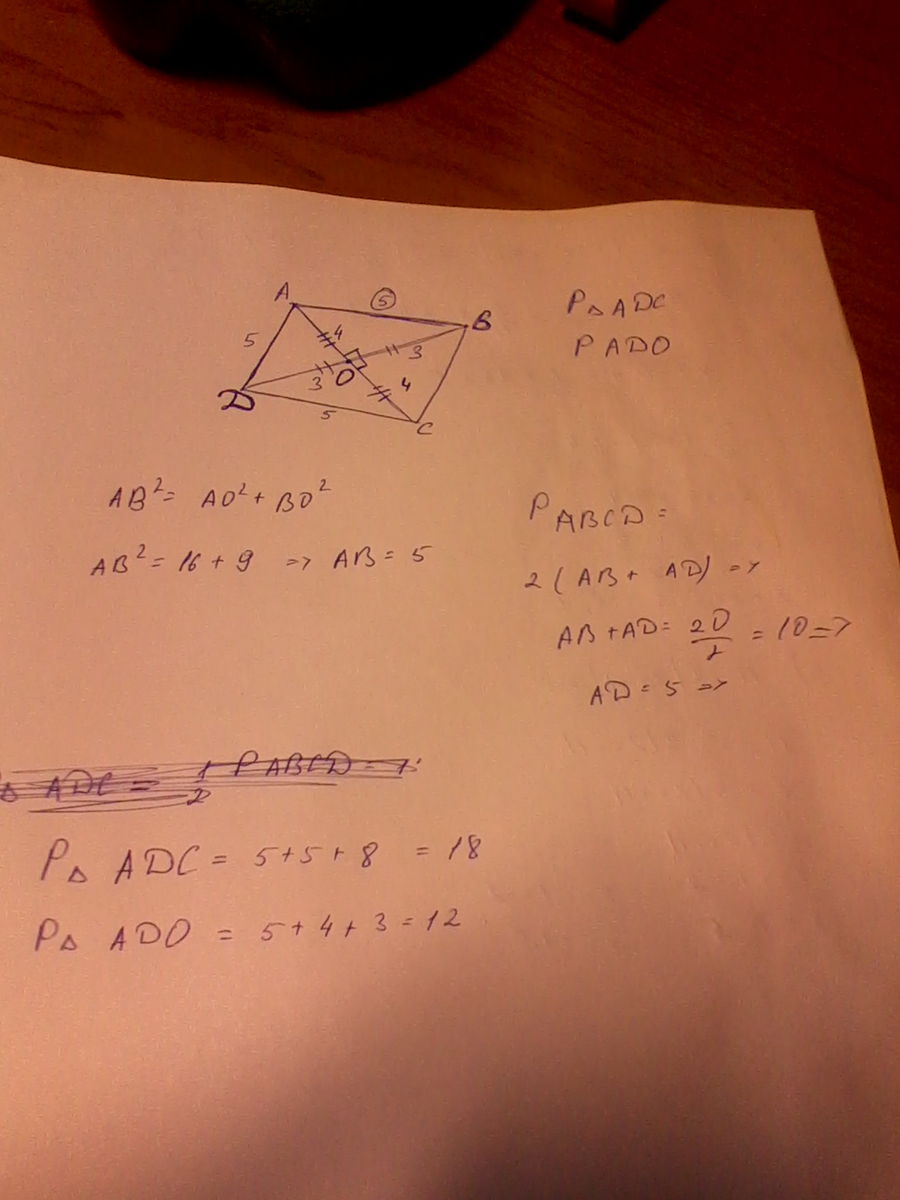 A 5 B
5 4 3
3 O 4
D 5 C
P△ ADC
P ADO
AB²= AO²+ BO²
AB² = 16 + 9 => AB = 5
P ABCD =
2 ( AB + AD) =>
AB + AD = 20/2 = 10 =>
AD = 5 =>
△ ADC = 1/2 P ABCD =
P△ ADC = 5+5+8 = 18
P△ ADO = 5+4+3=12